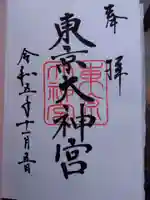 奉拝
東京大神宮
令和五年十一月五日
東京大神宮